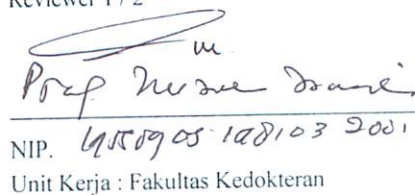 Reviewer 1 / 2
Prof
NIP. 19550905 198103 2001
Unit Kerja : Fakultas Kedokteran